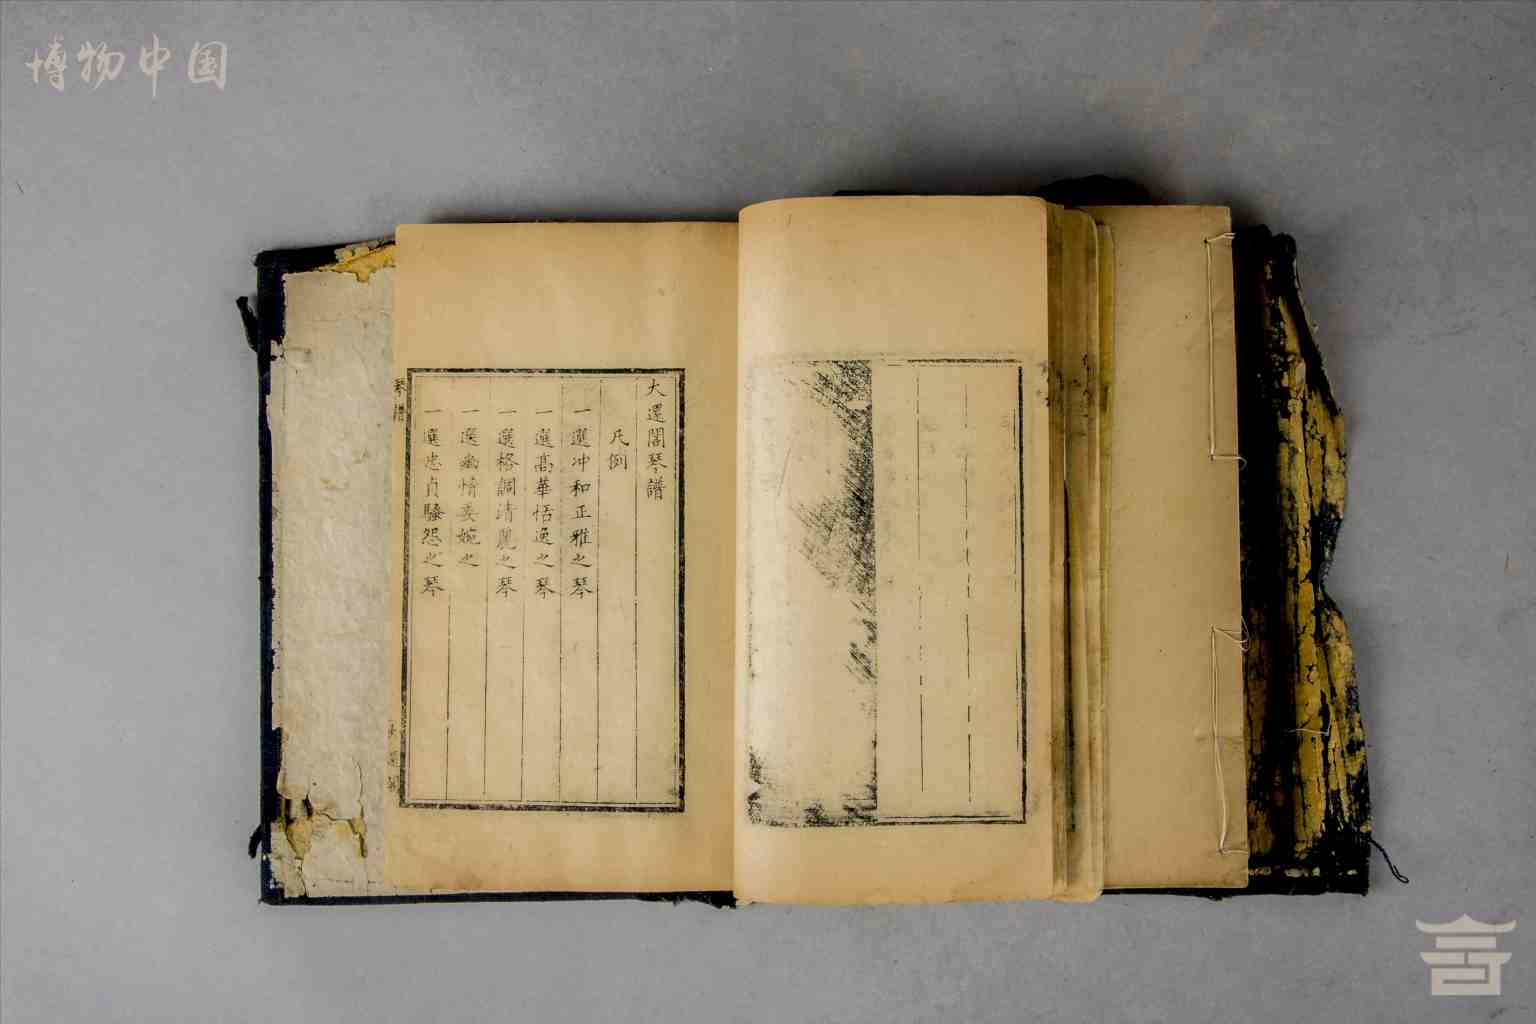 博物中国
大還閣琴譜
凡例
一選冲和正雅之琴
一選高華恬逸之琴
一選格調清麗之琴
一選幽情委婉之
一選忠貞騷怨之琴
琴譜